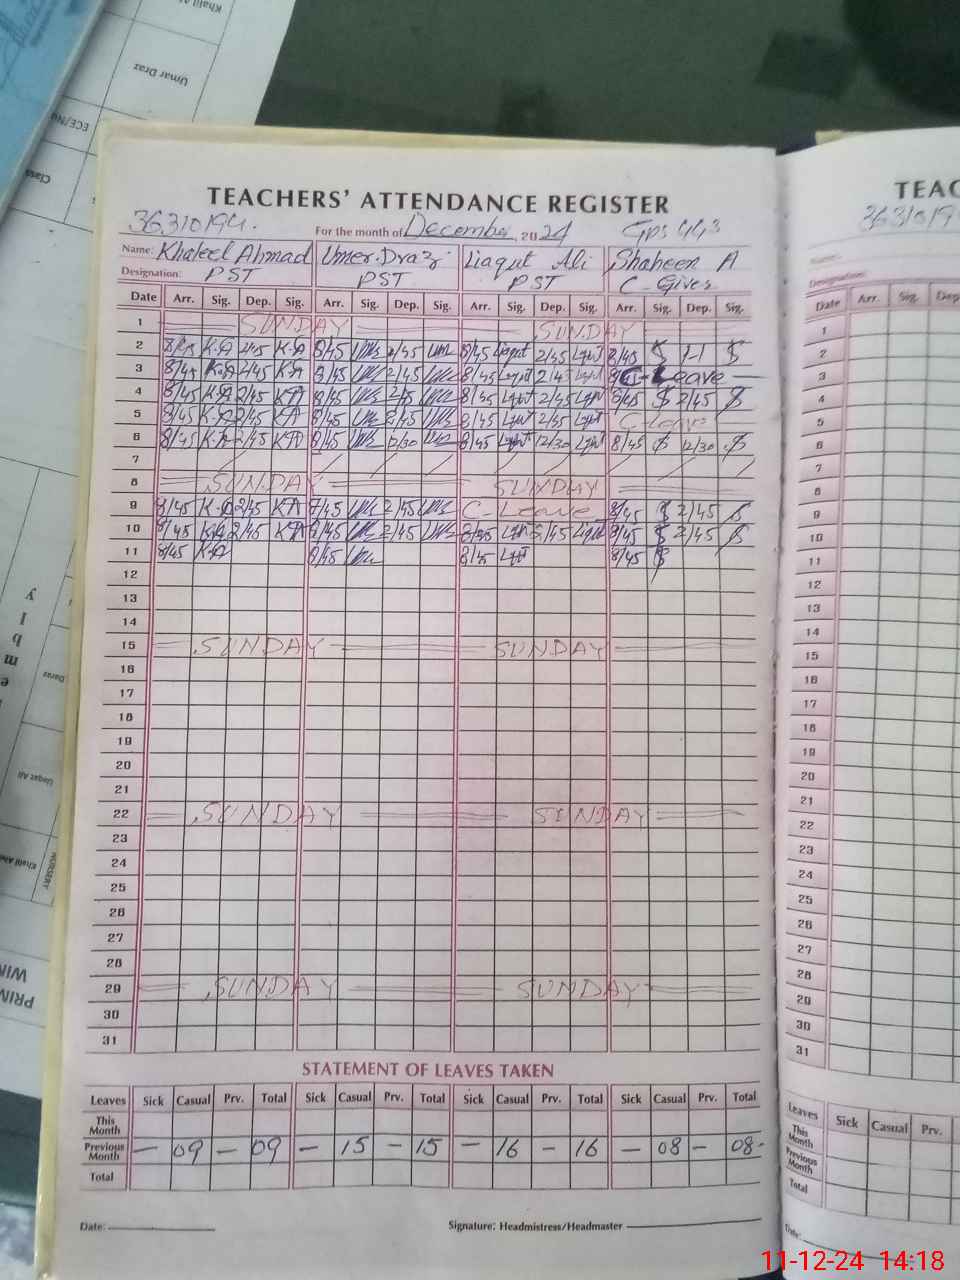 Khalil
Umar Draz
ECE/Nu
Class
TEACHERS' ATTENDANCE REGISTER
TEAC
36310194.
For the month of December, 2024
GPS 443
Name: Khaleel Ahmad Umer Draz Liaqut Ali Shaheen A
Designation: PST PST PST C-Giver
Date Arr. Sig. Dep. Sig. Arr. Sig. Dep. Sig. Arr. Sig. Dep. Sig. Arr. Sig. Dep. Sig.
1 SUNDAY SUNDAY
2 8/45 K.A 2/45 K.A 8/45 2/45 8/45 Liaqut 2/45 Liqut 8/45 $ 1-1 $
3 8/45 K.A 2/45 K.A 8/45 2/45 8/45 2/45 C-Leave
4 8/45 K.A 2/45 KA 8/45 2/45 8/45 2/45 8/45 $ 2/45 $
5 8/45 K.A 2/45 KA 8/45 2/45 8/45 2/45 C-Leave
6 8/45 K.A 2/45 KA 8/45 12/30 8/45 12/30 8/45 $ 12/30 $
7
8 SUNDAY SUNDAY
9 8/45 K.A 2/45 KA 2/45 C-Leave 8/45 $ 2/45 $
10 8/45 K.A 2/45 KA 8/45 2/45 2/45 8/45 $ 2/45 $
11 8/45 K.A 8/45 8/45 $
12
13
14
15 SUNDAY SUNDAY
16
17
18
19
20
21
22 SUNDAY SUNDAY
23
24
25
26
27
28
29 SUNDAY SUNDAY
30
31
STATEMENT OF LEAVES TAKEN
Leaves Sick Casual Prv. Total Sick Casual Prv. Total Sick Casual Prv. Total Sick Casual Prv. Total
This Month
Previous Month — 09 — 09 — 15 — 15 — 16 — 16 — 08 — 08
Total
Date: Signature: Headmistress/Headmaster
Name:
Designation:
Date Arr. Sig. Dep
1
2
3
4
5
6
7
8
9
10
11
12
13
14
15
16
17
18
19
20
21
22
23
24
25
26
27
28
29
30
31
Leaves Sick Casual Prv.
This Month
Previous Month
Total
Date:
11-12-24 14:18